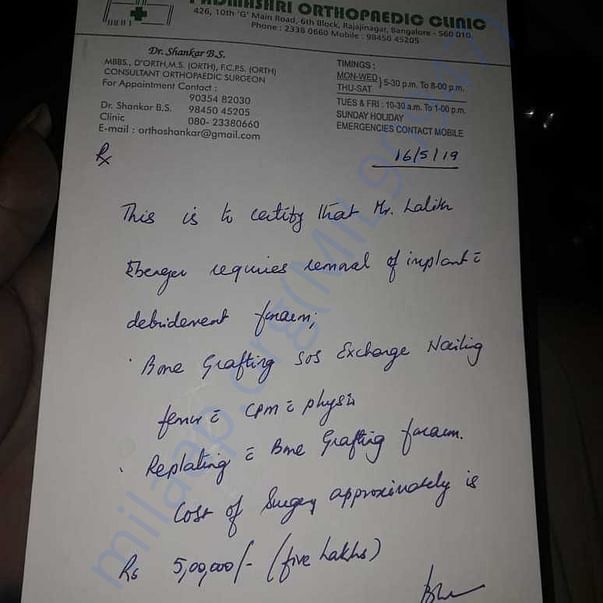 PADMASHRI ORTHOPAEDIC CLINIC
426, 10th 'G' Main Road, 6th Block, Rajajinagar, Bangalore - 560 010.
Phone : 2338 0660 Mobile : 98450 45205
Dr. Shankar B.S.
MBBS., D'ORTH,M.S. (ORTH), F.C.P.S. (ORTH)
CONSULTANT ORTHOPAEDIC SURGEON
For Appointment Contact :
90354 82030
Dr. Shankar B.S. 98450 45205
Clinic 080- 23380660
E-mail : orthoshankar@gmail.com
TIMINGS :
MON-WED
THU-SAT } 5-30 p.m. To 8-00 p.m.
TUES & FRI : 10-30 a.m. To 1-00 p.m.
SUNDAY HOLIDAY
EMERGENCIES CONTACT MOBILE
16/5/19
Rx
This is to certify that Mr. Lalith
requires removal of implant c̄
debridement forearm;
· Bone Grafting sos Exchange Nailing
femur c̄ CPM c̄ physio
· Replating c̄ Bone Grafting forearm.
Cost of Surgery approximately is
Rs 5,00,000/- (five Lakhs)
milaap.org